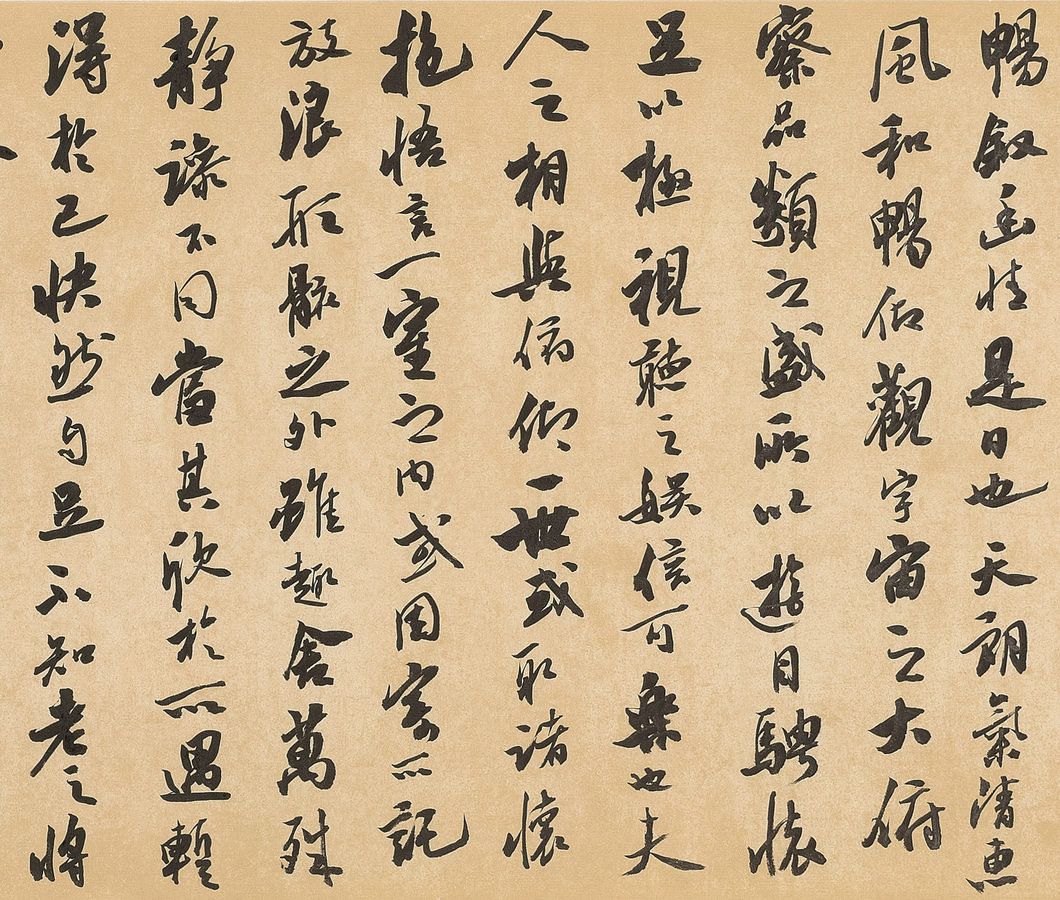 暢叙幽情是日也天朗氣清惠
風和暢仰觀宇宙之大俯
察品類之盛所以遊目騁懷
足以極視聽之娛信可樂也夫
人之相與俯仰一世或取諸懷
抱悟言一室之內或因寄所託
放浪形骸之外雖趣舍萬殊
靜躁不同當其欣於所遇暫
得於己快然自足不知老之將